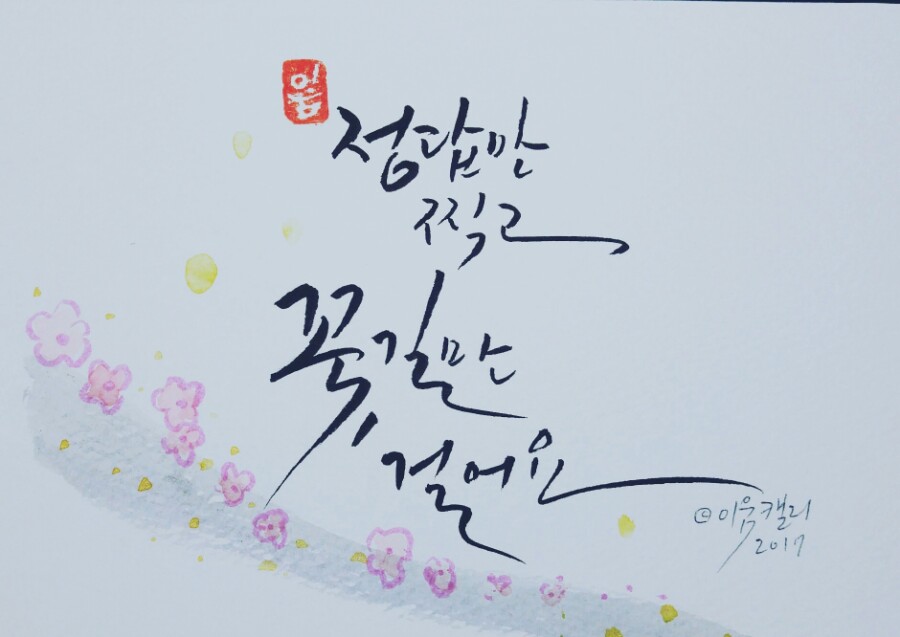 이움
정답만
찍고
꽃길만
걸어요
©이움캘리
2017